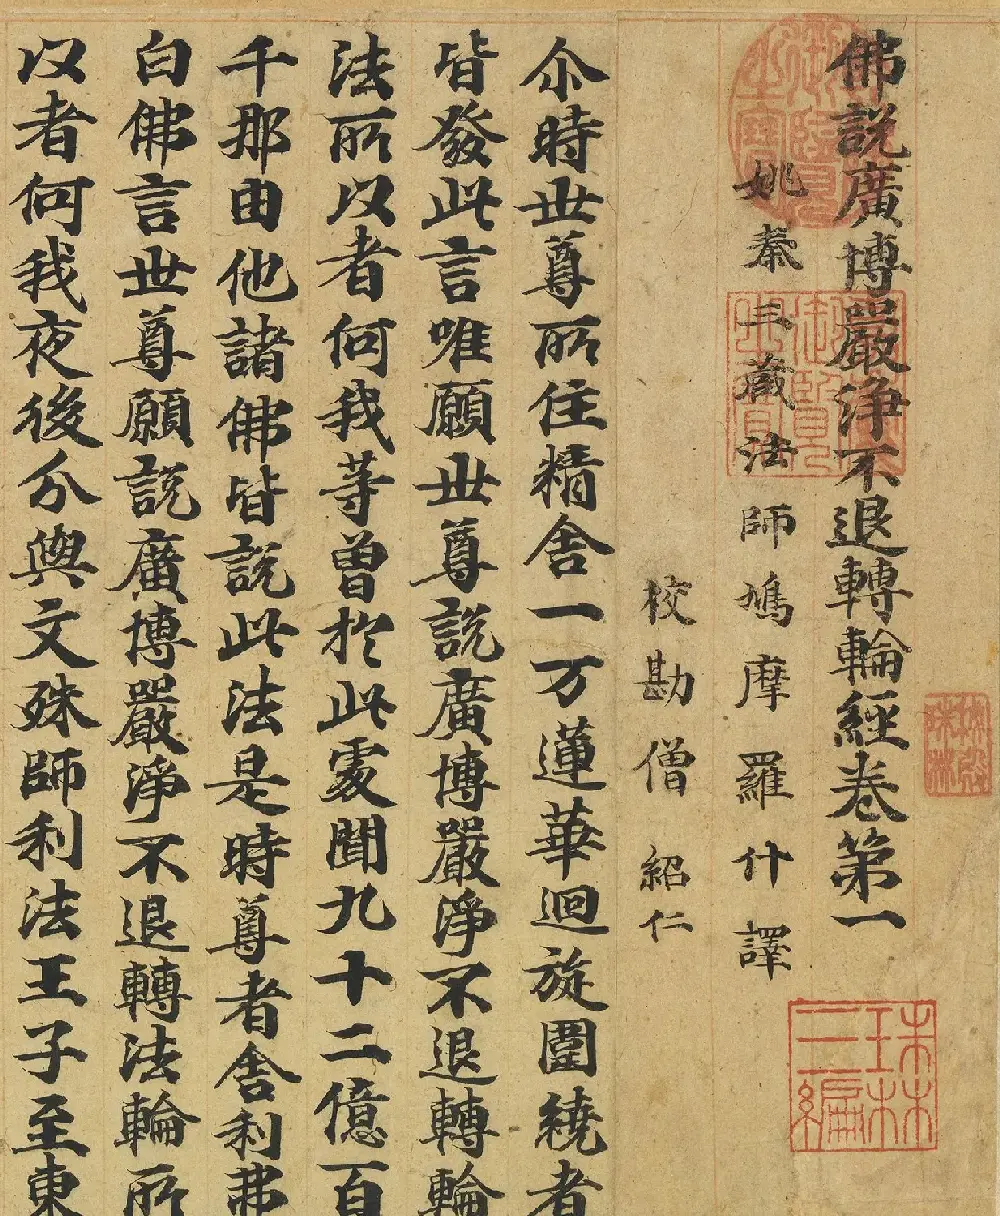 佛說廣博嚴淨不退轉輪經卷第一
姚秦三藏法師鳩摩羅什譯
校勘僧紹仁
尒時世尊所住精舍一万蓮華迴旋圍繞者
皆發此言唯願世尊說廣博嚴淨不退轉輪
法所以者何我等曾於此處聞九十二億百
千那由他諸佛皆說此法是時尊者舍利弗
白佛言世尊願說廣博嚴淨不退轉法輪所
以者何我夜後分與文殊師利法王子至東
珠林
三編